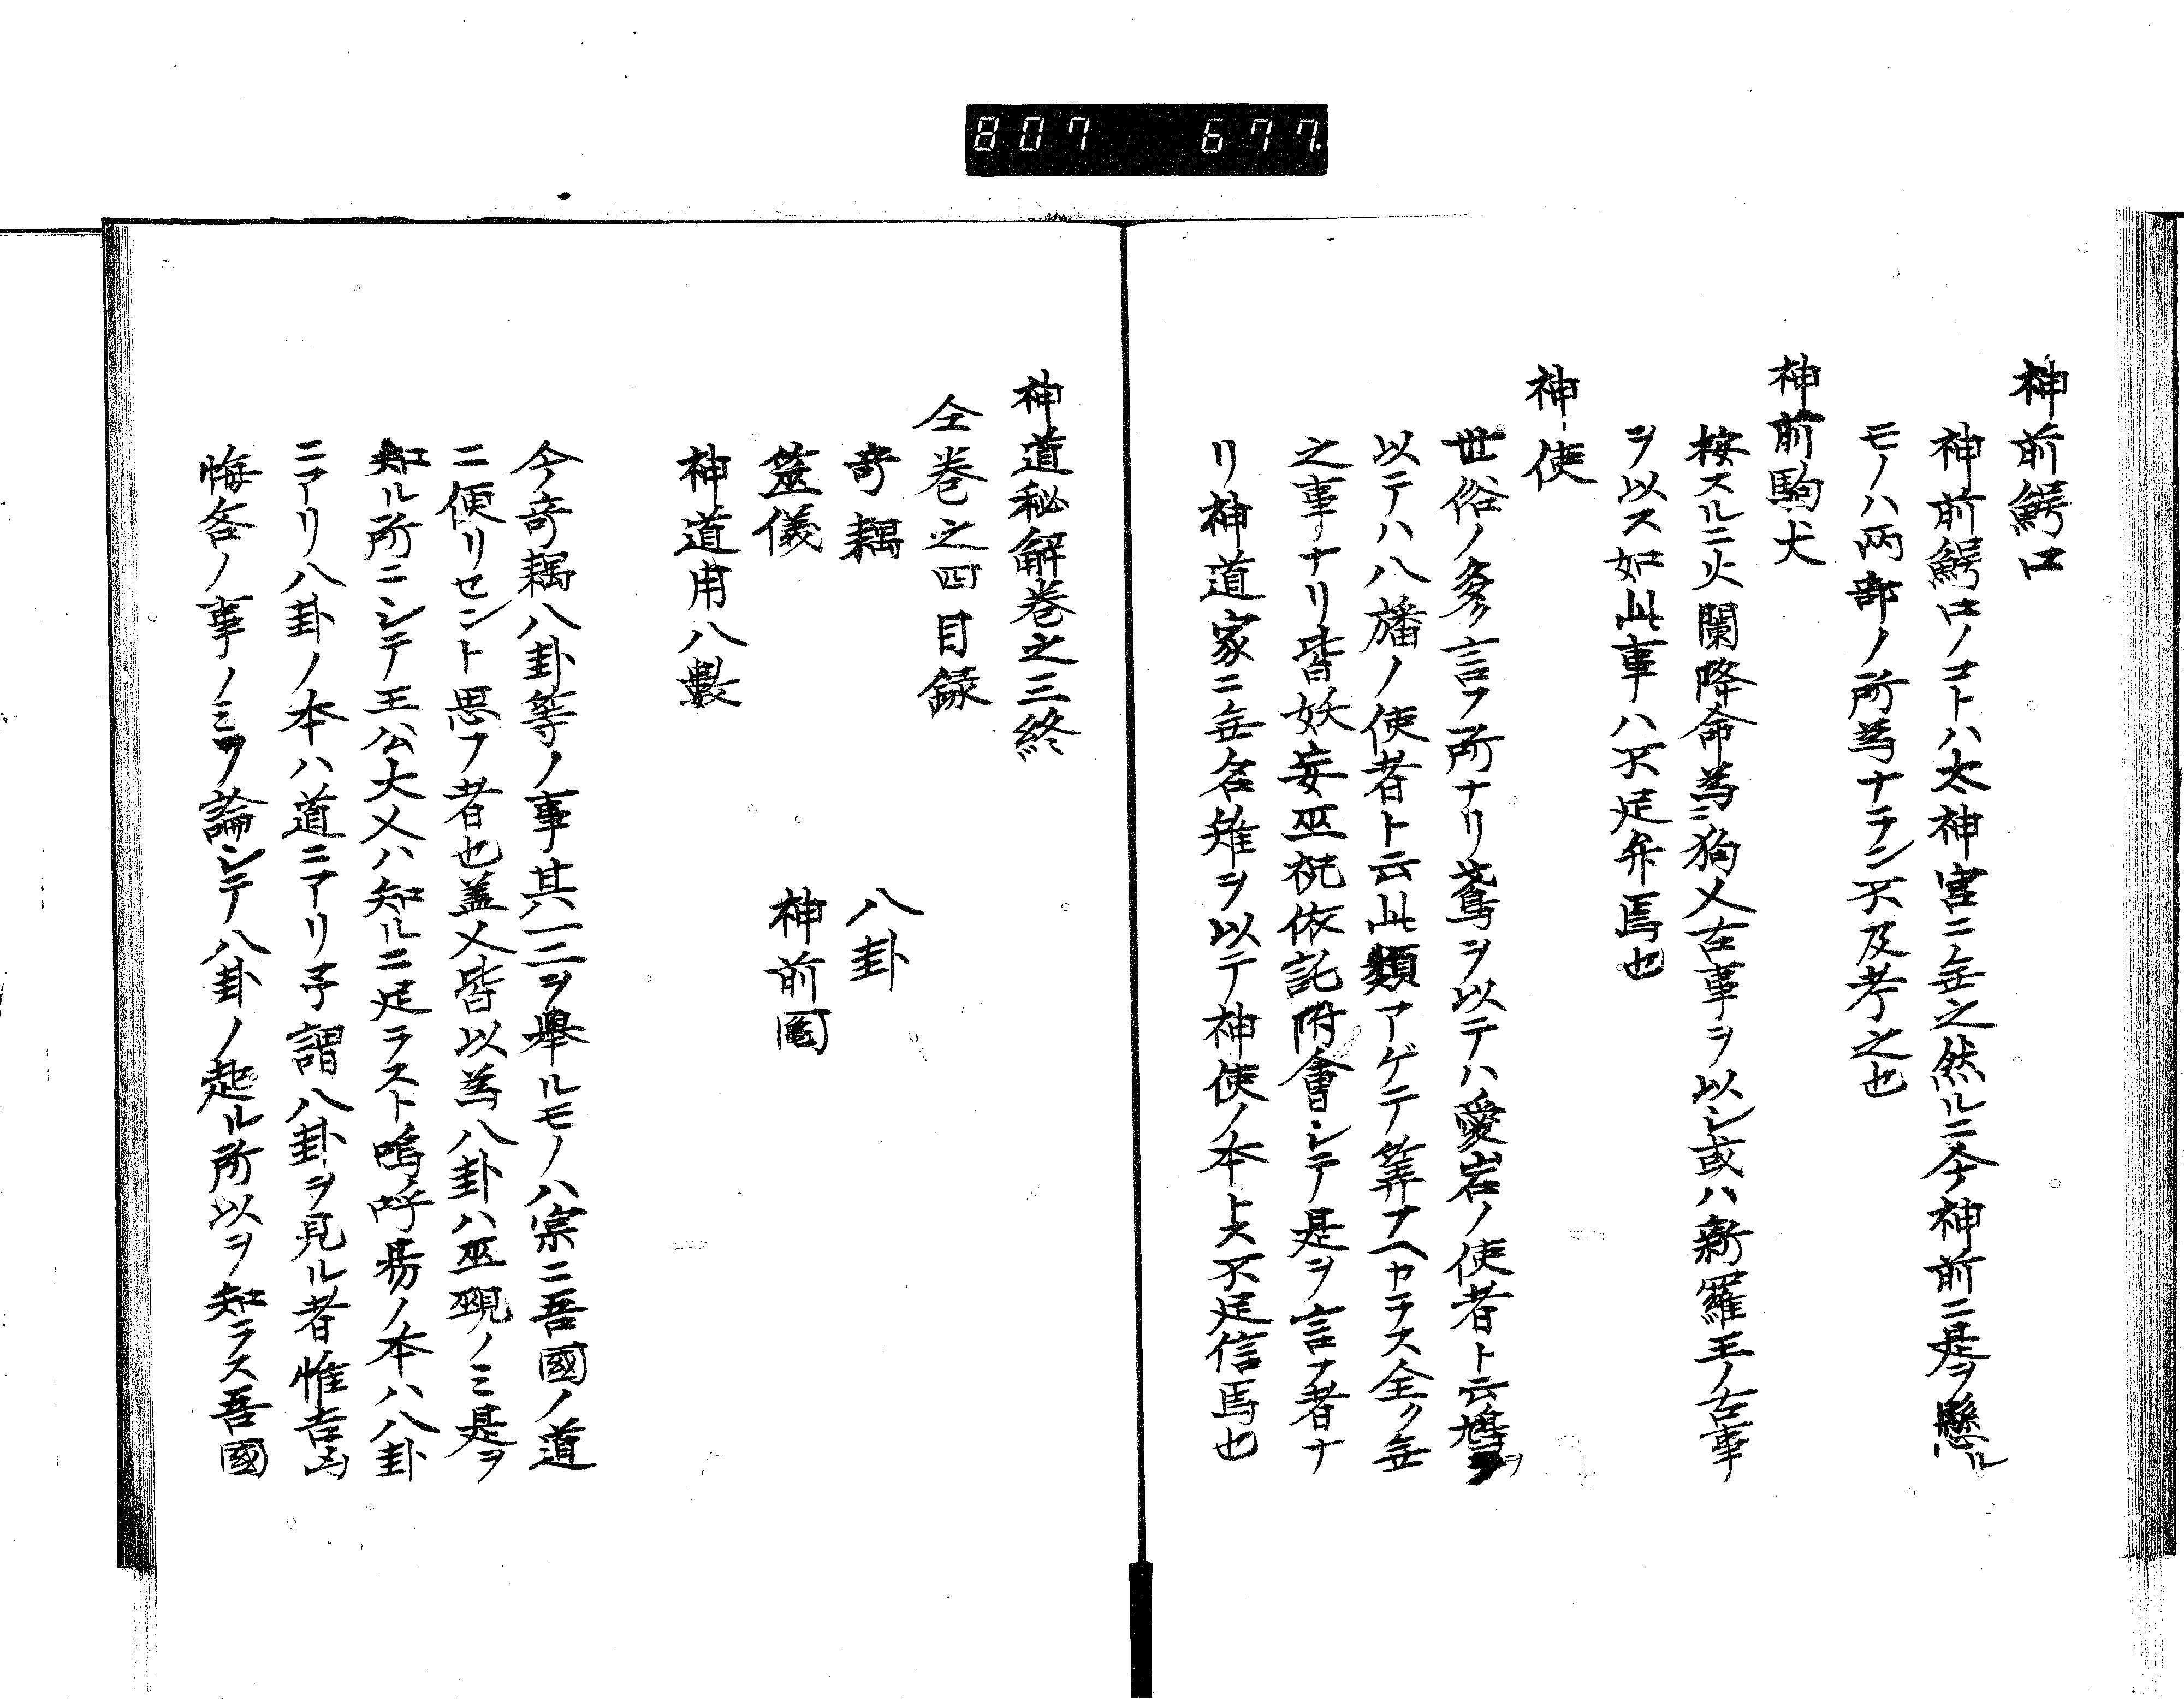 807 677.
神前鰐口
神前鰐口ノヿトハ太神宮ニ無之然ルニ今神前ニ是ヲ懸ル
モノハ両部ノ所為ナラン不及考之也
神前駒犬
按スルニ火闌降命為狗又古事ヲ以シ或ハ新羅王ノ古事
ヲ以ス如此事ハ不足弁焉也
神使
世俗ノ多ク言フ所ナリ鳶ヲ以テハ愛宕ノ使者ト云鳩ヲ
以テハ八幡ノ使者ト云此類アゲテ筭フヘカラス全ク無
之事ナリ皆妖妄巫祝依託附會シテ是ヲ言フ者ナ
リ神道家ニ無名雉ヲ以テ神使ノ本トス不足信焉也
神道秘解巻之三終
仝巻之四目録
奇耦 八卦
筮儀 神前圖
神道用八數
今奇耦八卦等ノ事其一二ヲ舉ルモノハ宗ニ吾國ノ道
ニ便リセント思フ者也盖人皆以為八卦ハ巫覡ノミ是ヲ
知ル所ニシテ王公大人ハ知ルニ足ラスト嗚呼易ノ本ハ八卦
ニアリ八卦ノ本ハ道ニアリ予謂八卦ヲ見ル者惟吉凶
悔吝ノ事ノミヲ論シテ八卦ノ起ル所以ヲ知ラス吾國